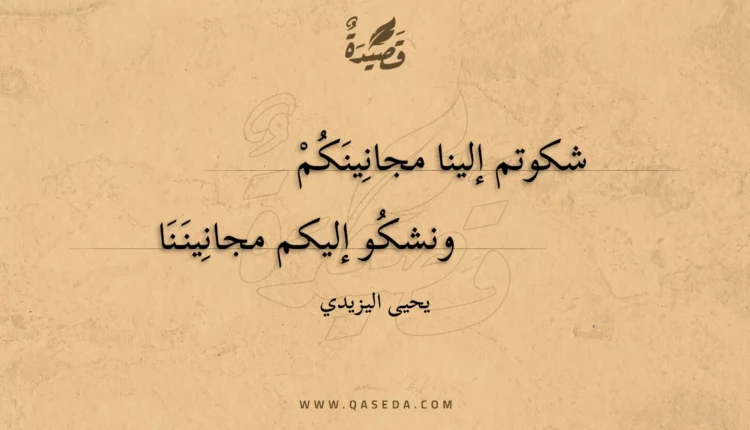 قَصِيدَةٌ
شكوتم إلينا مجانِينَكُمْ
ونشكُو إليكم مجانِينَنَا
يحيى اليزيدي
WWW.QASEDA.COM